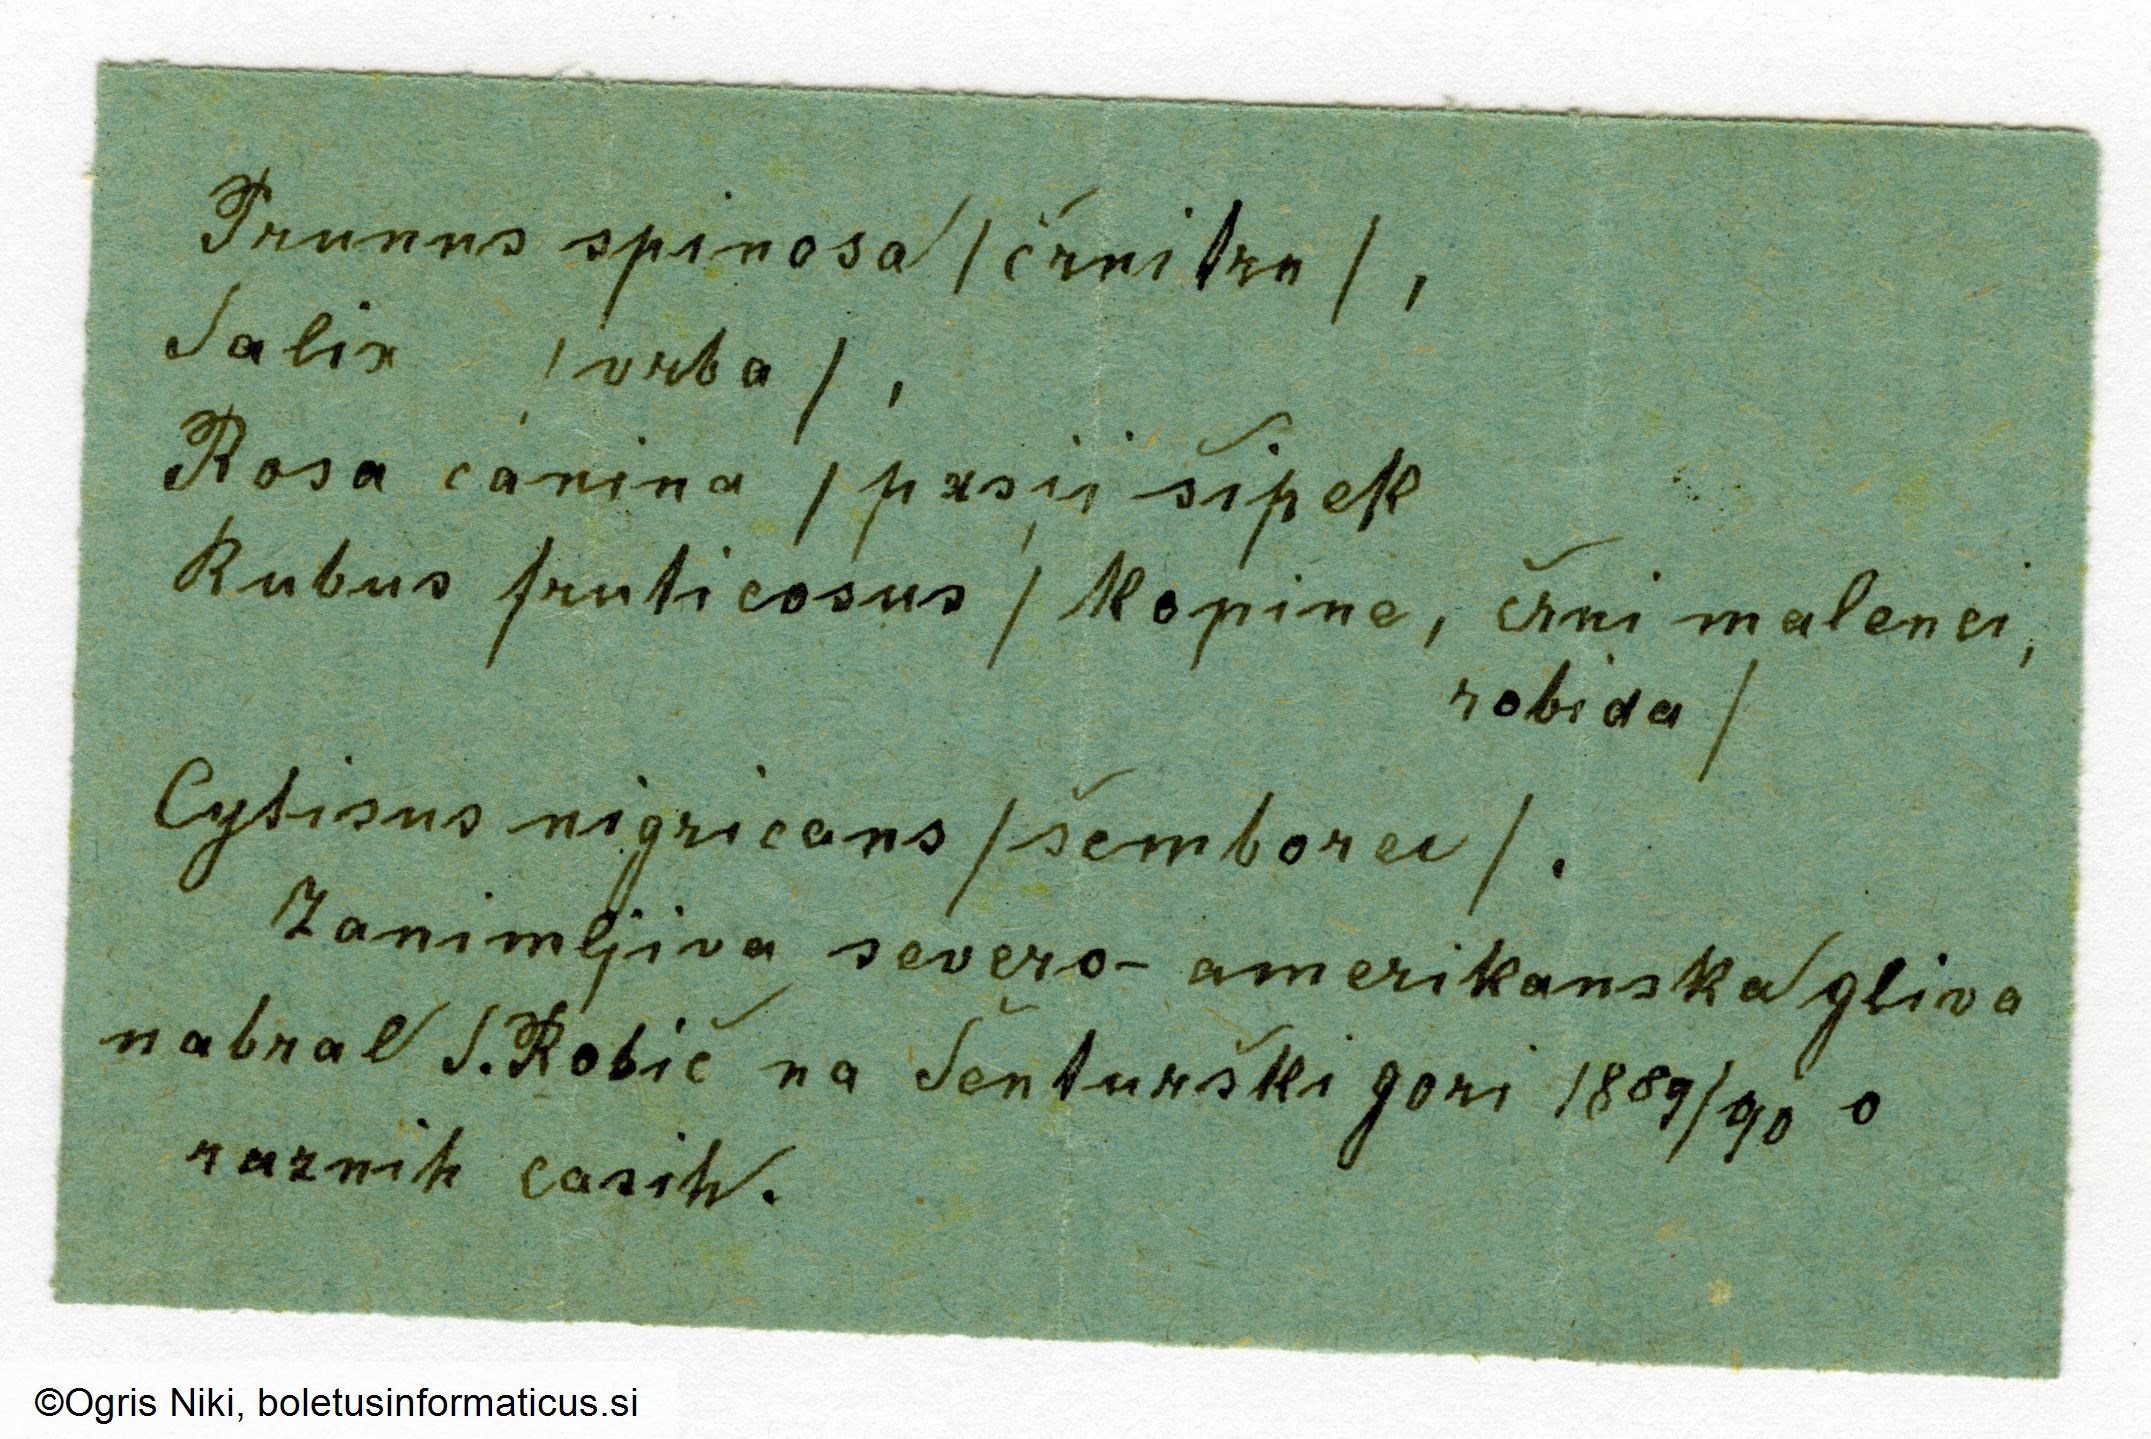 Prunus spinosa /črni trn/,
Salix /vrba/,
Rosa canina /pasji šipek
Rubus fruticosus /kopine, črni malenci,
robida/
Cytisus nigricans /šemborci/.
Zanimljiva severo-amerikanska gliva
nabral S. Robič na Šenturški gori 1889/90 o
raznih casih.
©Ogris Niki, boletusinformaticus.si